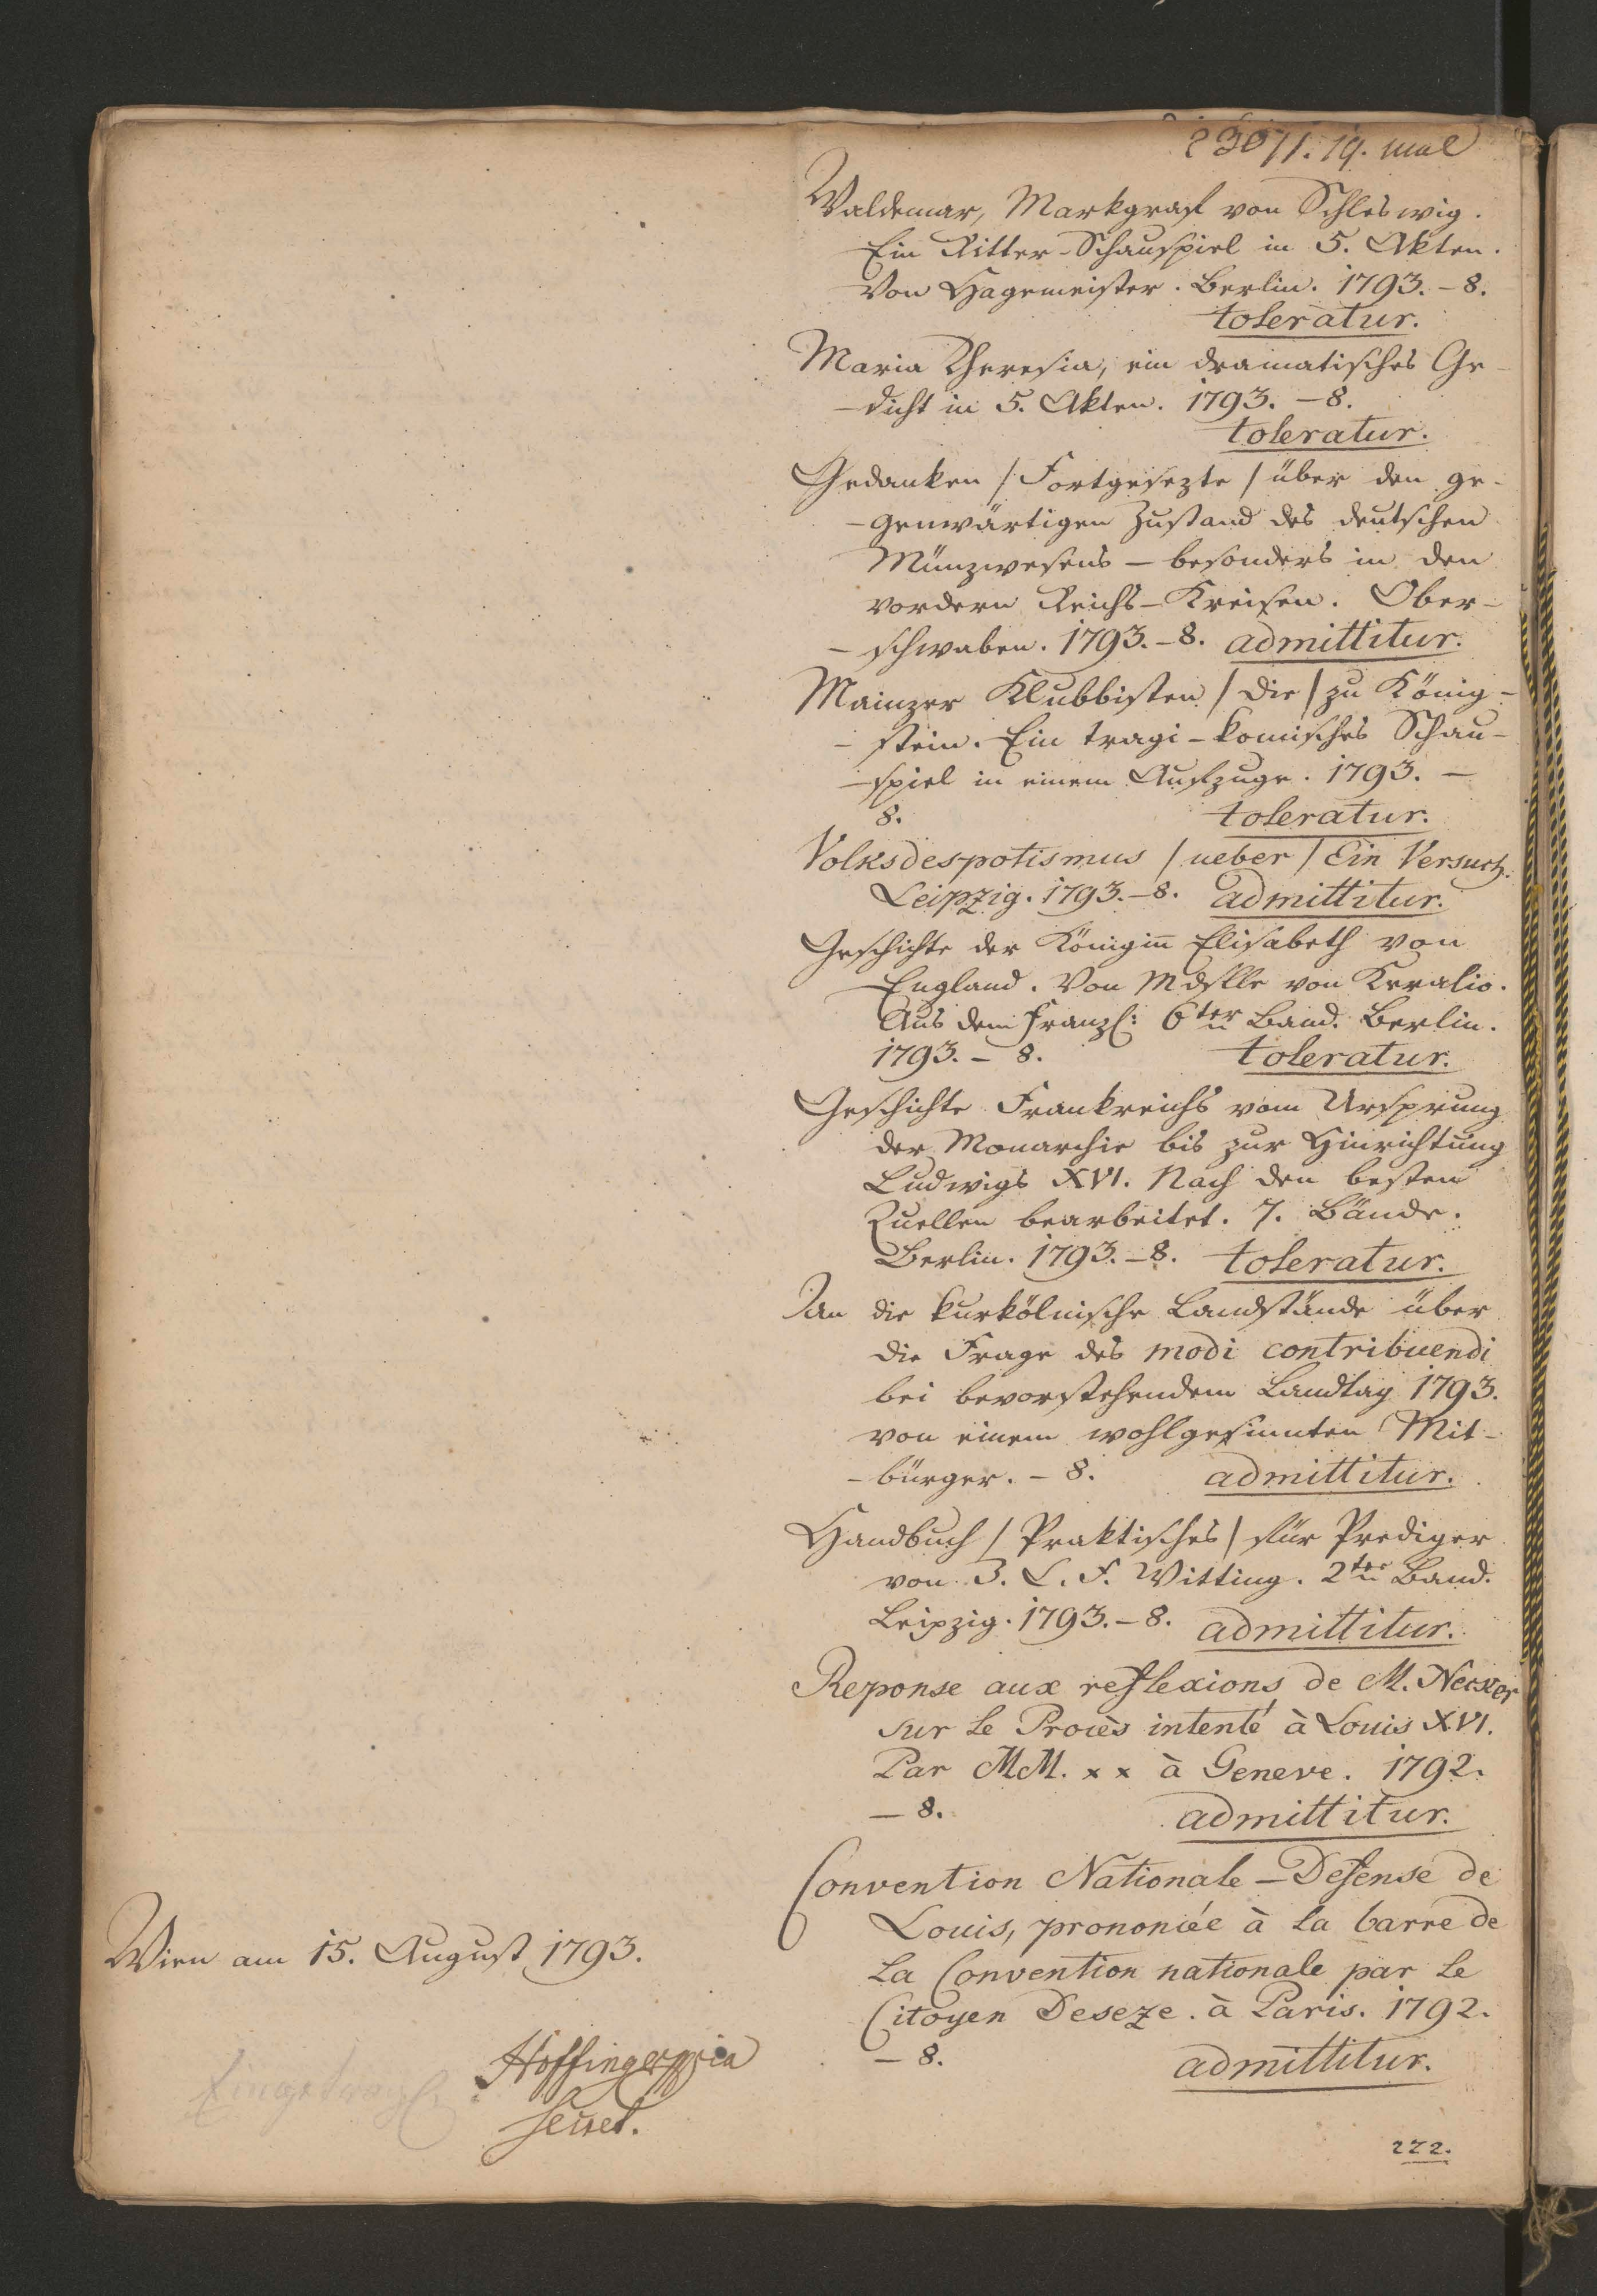 Waldemar, Markgraf von Schleswig.
Ein Ritter-Schauspiel in 5. Akten.
Von Hagemeister. Berlin. 1793. - 8.
toleratur.
Maria Theresia, ein dramatisches Ge-
-dicht in 5. Akten. 1793. - 8.
toleratur.
Gedanken /Fortgesezte/ über den ge-
-genwärtigen Zustand des deutschen
Münzwesens - besonders in den
vordern Reichs-Kreisen. Ober-
-schwaben. 1793. - 8. admittitur.
Mainzer Klubbisten /die/ zu König-
-stein. Ein tragi-komisches Schau-
-spiel in einem Aufzuge. 1793. -
8. toleratur.
Volksdespotismus /ueber/ Ein Versuch.
Leipzig. 1793. - 8. admittitur.
Geschichte der Königin̄ Elisabeth von
England. Von Mdslle von Keralio.
Aus dem Franzs: 6ter Band. Berlin.
1793. - 8. toleratur.
Geschichte Frankreichs vom Ursprung
der Monarchie bis zur Hinrichtung
Ludwigs XVI. Nach den besten
Quellen bearbeitet. 7. Bände.
Berlin. 1793. - 8. toleratur.
An die kurkölnische Landstände über
die Frage des modi contribuendi
bei bevorstehendem Landtag 1793.
von einem wohlgesinnten Mit-
-bürger. - 8. admittitur.
Handbuch /Praktisches/ für Prediger
von J. C. F. Witting. 2ter Band.
Leipzig. 1793. - 8. admittitur.
Reponse aux reflexions de M. Necker
sur le Procès intenté à Louis XVI.
Par MM. x x à Geneve. 1792.
- 8. admittitur.
Convention Nationale - Defense de
Louis, prononcée à la barre de
la Convention nationale par le
Citoyen Deseze. à Paris. 1792.
- 8. admittitur.
222.
Wien am 15. August 1793.
Hoffinger